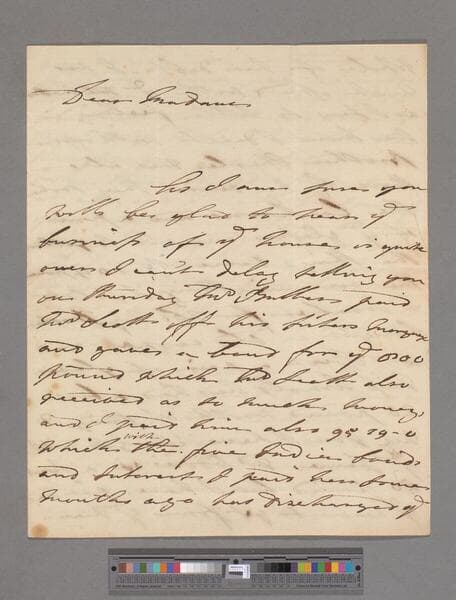 Dear Madam
As I am sure you
will be glad to hear yͤ
business of yͤ houses is quite
over I can't delay telling you
on Thursday Mʳ paid
Mʳ Scott off his sisters
and gave a bond for yͤ 800
pound which Mʳ Scott also
received as so much money,
and I paid him also 95 19-0
which with the five India bonds
and Interest I paid her some
months ago has discharged yͤ